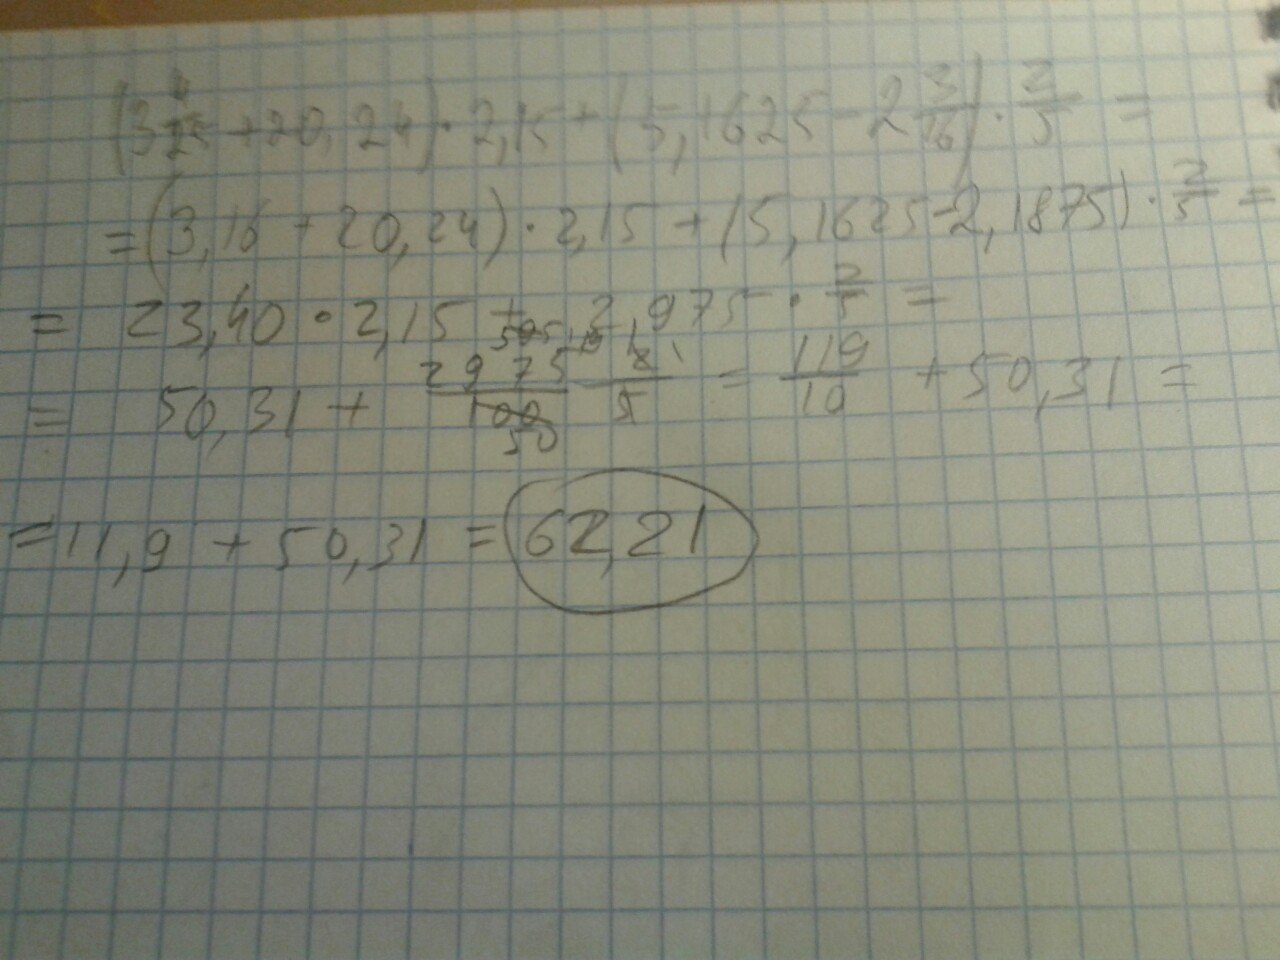 (3 4/25 + 20,24) · 2,15 + (5,1625 - 2 3/16) · 2/5 =
= (3,16 + 20,24) · 2,15 + (5,1625 - 2,1875) · 2/5 =
= 23,40 · 2,15 + 2,975 · 2/5 =
= 50,31 + 2975/100 · 2/5 = 119/10 + 50,31 =
= 11,9 + 50,31 = 62,21